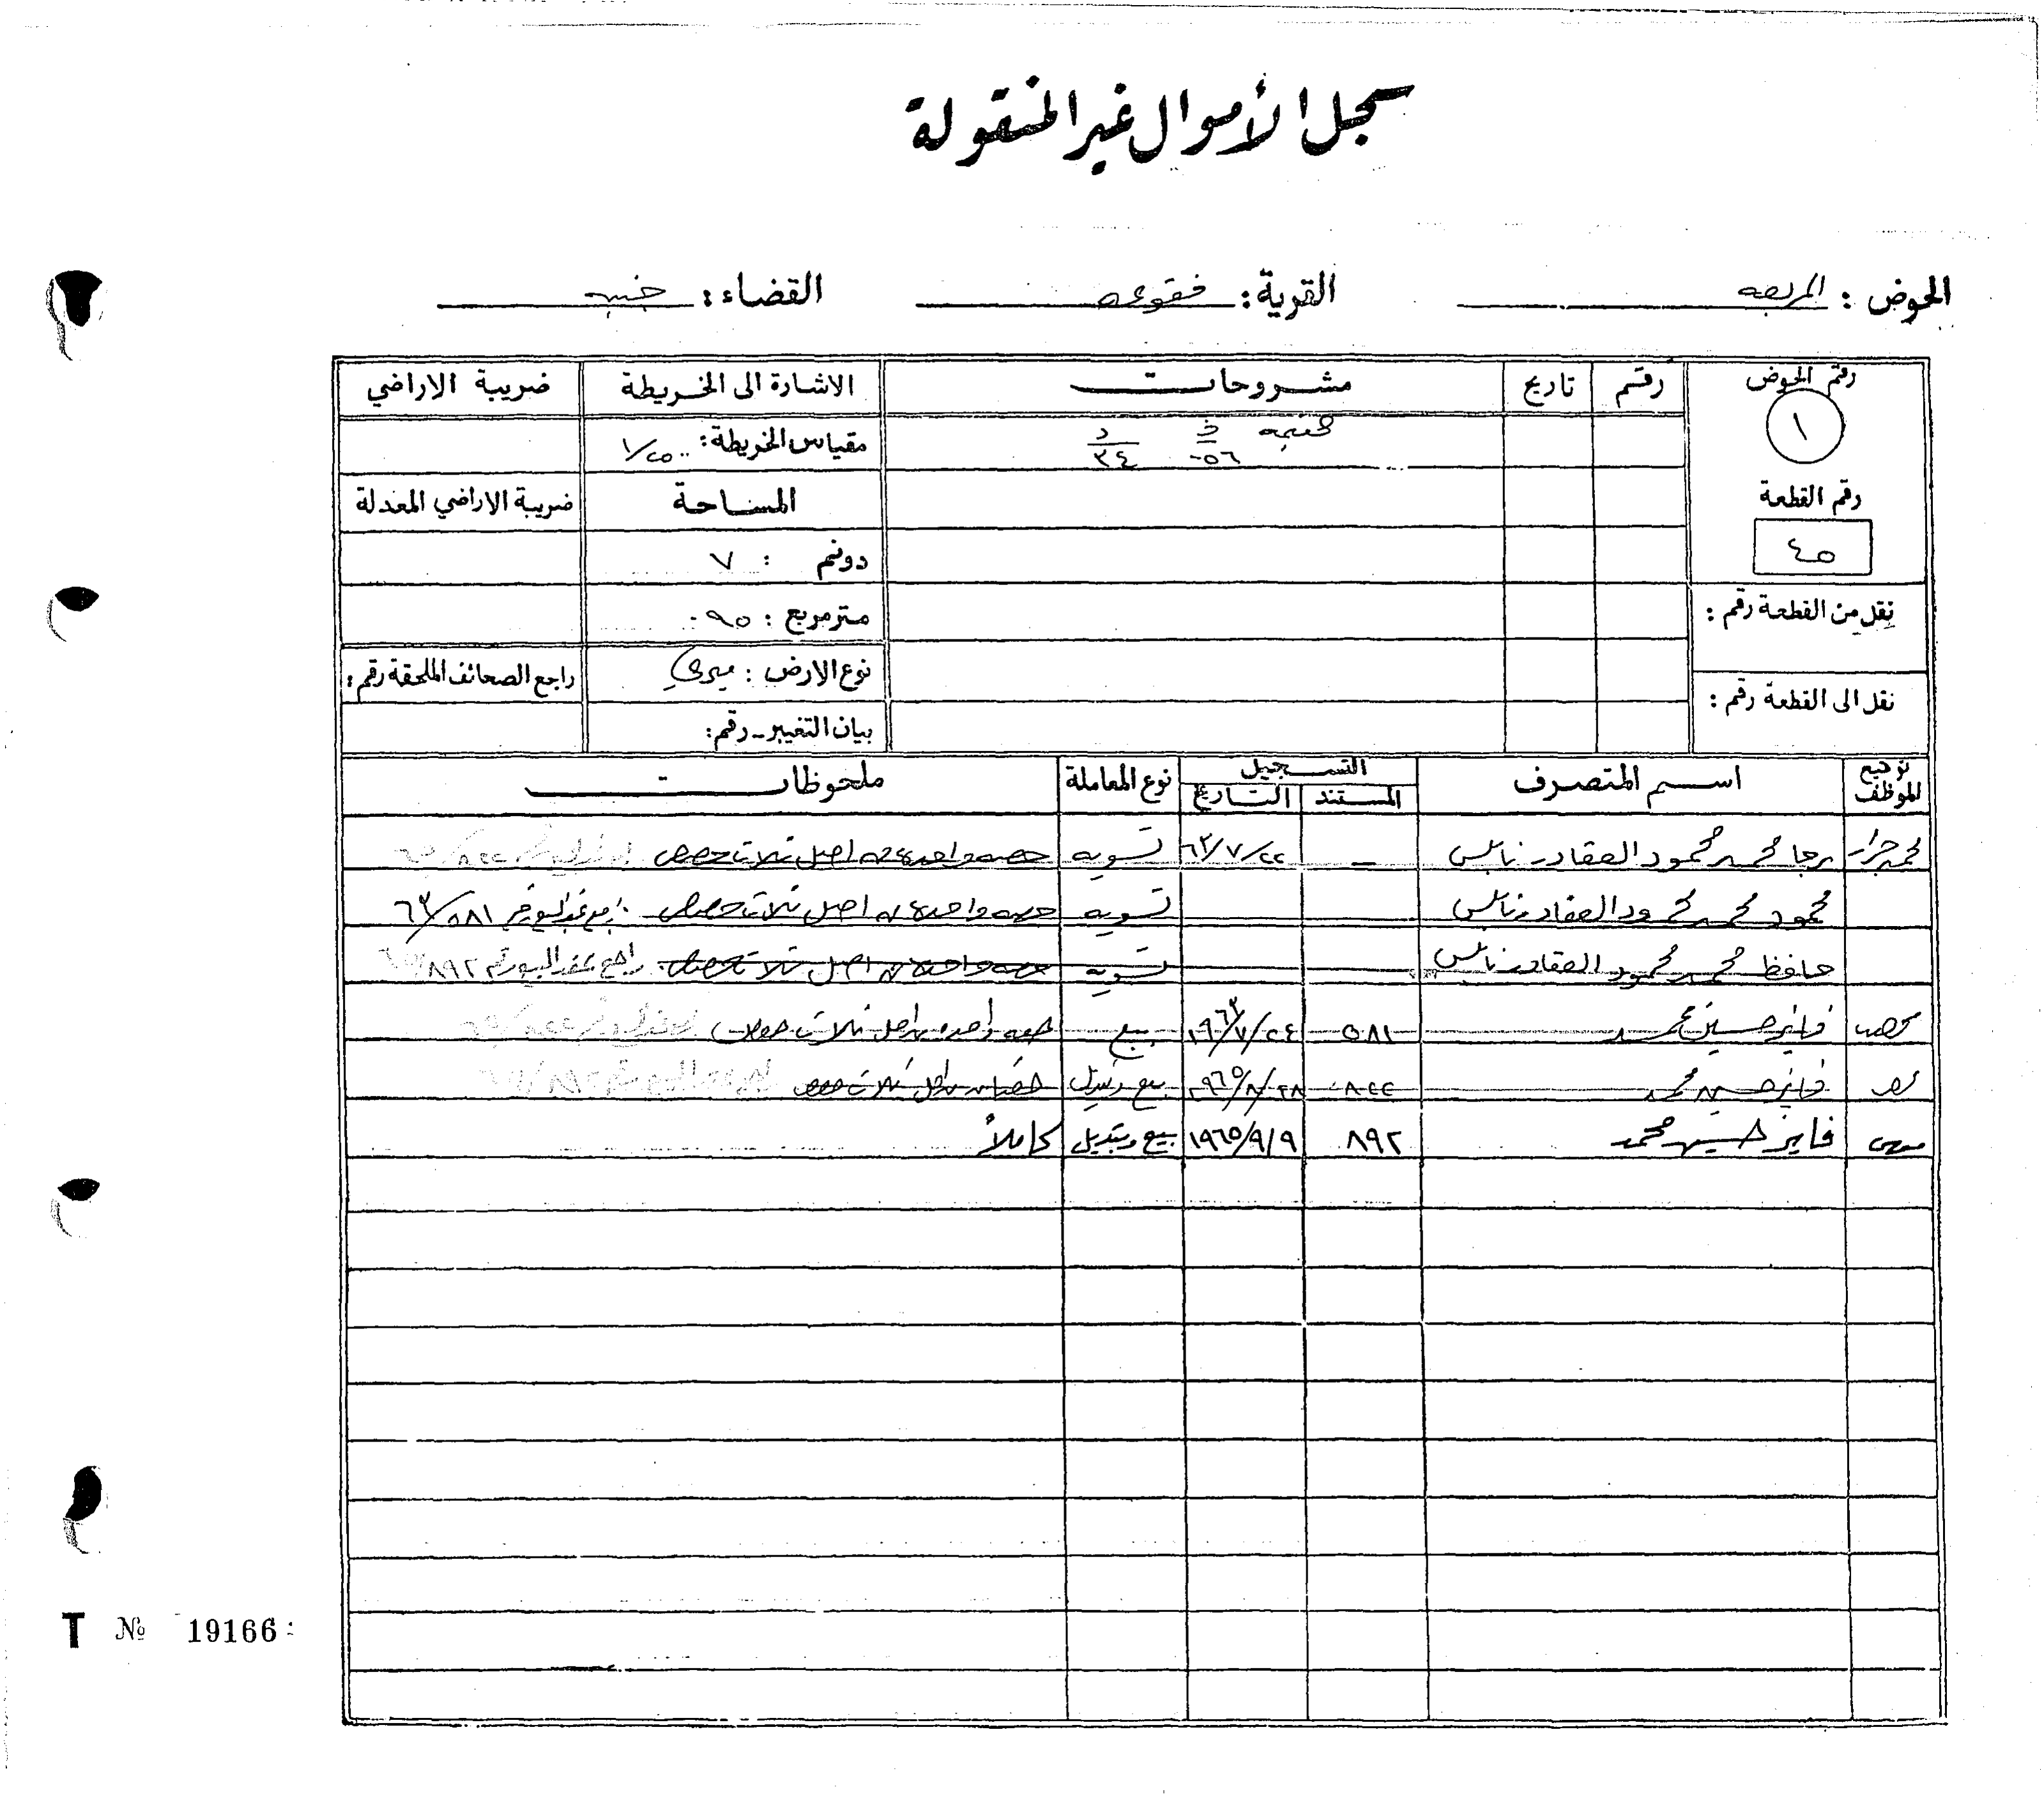 سجل الأموال غير المنقولة
الحوض : المربعه القرية : فقوعه القضاء : جنين
رقم الحوض رقم تاريخ مشروحات الاشارة الى الخريطة ضريبة الاراضي
١ القيمه ف د مقياس الخريطة : ١/٢٥٠٠
٠٥٦ ٣٤
رقم القطعة المساحة ضريبة الاراضي المعدلة
٤٥ دونم : ٧
نقل من القطعة رقم : متر مربع : ٠٩٥
نوع الارض : ميري راجع الصحائف الملحقة رقم :
نقل الى القطعة رقم : بيان التغيير - رقم :
توقيع الموظف اسم المتصرف التسجيل نوع المعاملة ملحوظات
المستند التاريخ
محمد جرار رجا محمد محمود العقاد نابلس - ٦٣/٧/٢٢ تسويه حصه واحده من اصل ثلاث حصص
محمود محمد محمود العقاد نابلس تسويه حصه واحده من اصل ثلاث حصص راجع عقد البيع رقم ٦٣/٥٨١
حافظ محمد محمود العقاد نابلس تسويه حصه واحده من اصل ثلاث حصص راجع عقد البيع رقم ٨٩٢
فايز حسين محمد ٥٨١ ١٩٦٣/٧/٢٤ بيع حصه واحده من اصل ثلاث حصص
فايز حسين محمد ٨٢٢ ١٩٦٥/٨/٢٨ بيع وتبديل حصتان من اصل ثلاث حصص
فايز حسين محمد ٨٩٢ ١٩٦٥/٩/٩ بيع وتبديل كاملاً
T № 19166